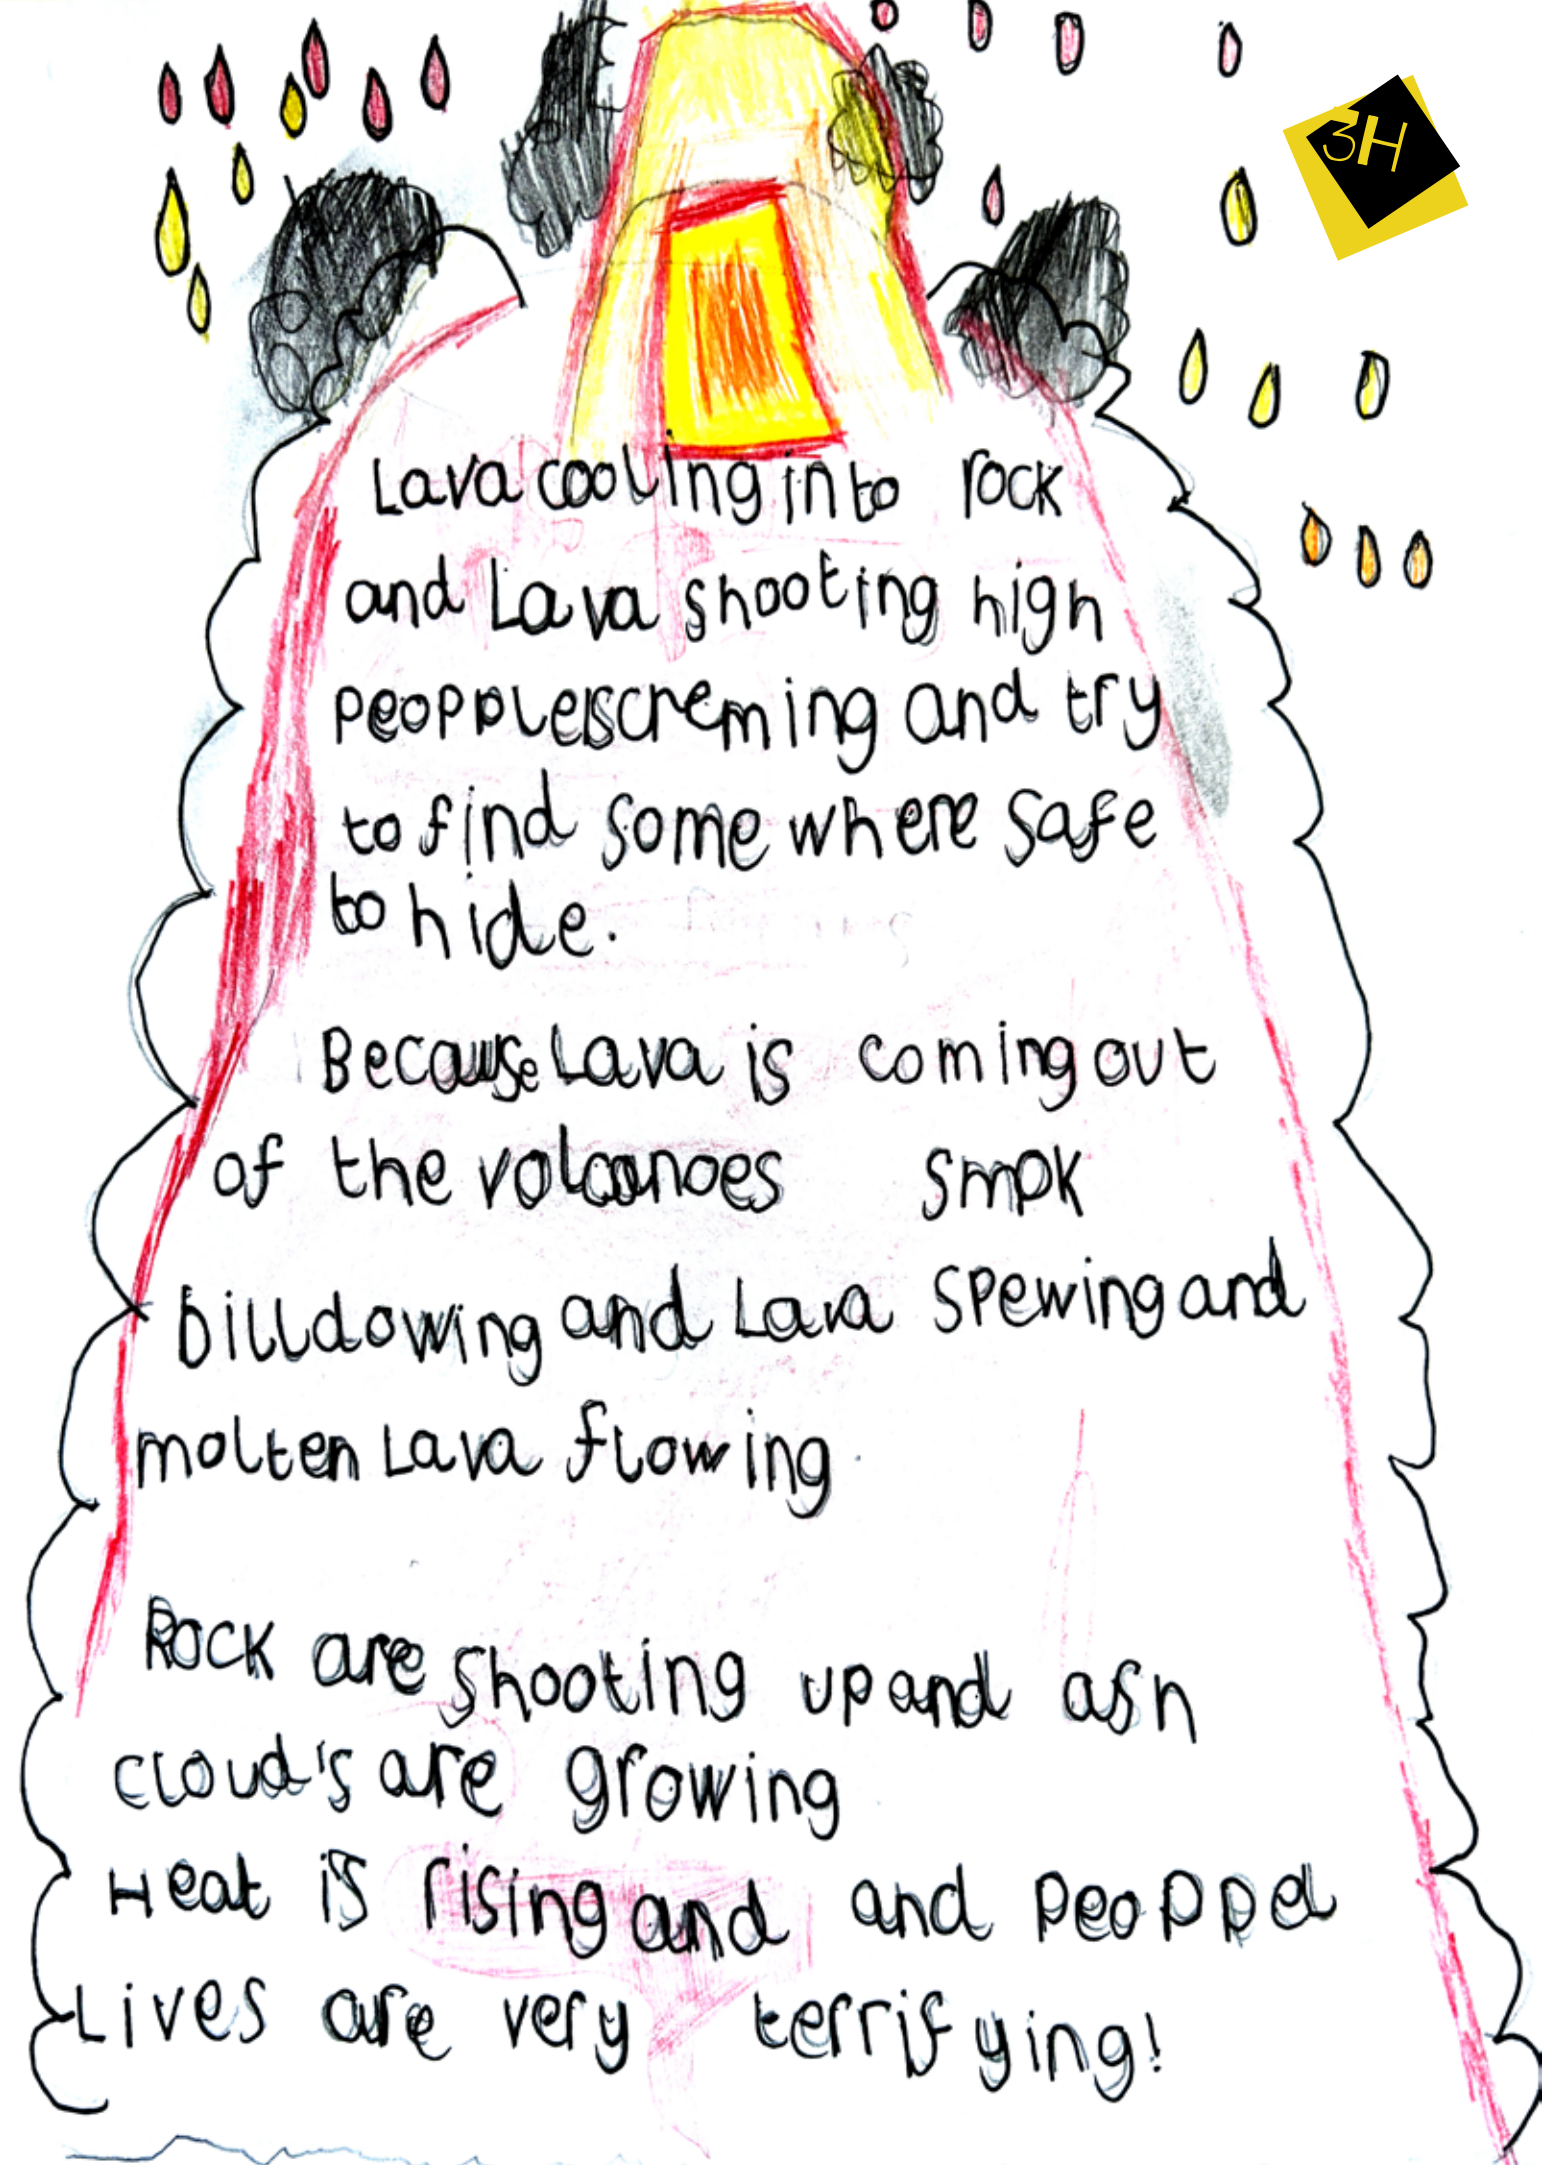 3H
Lava cooling into rock
and Lava shooting high
peopple screming and try
to find some where safe
to hide.
Because Lava is coming out
of the volcanoes smok
billdowing and Lava spewing and
molten Lava flowing
Rock are shooting up and ash
cloud's are growing
Heat is rising and and peoppel
Lives are very terrifying!